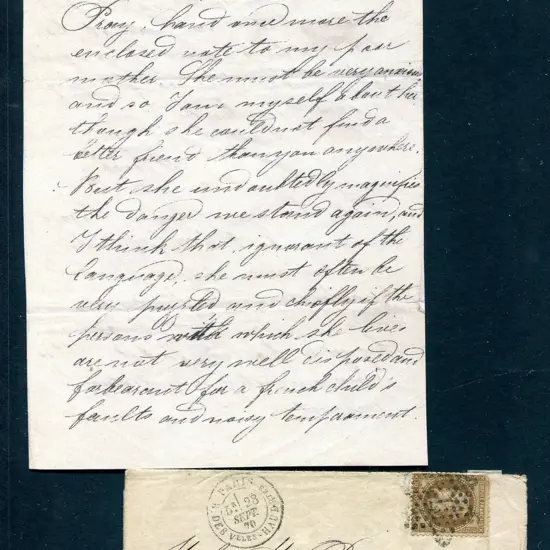 Pray, hand once more the
enclosed note to my poor
mother. She must be very anxious
and so I am myself about her
though she could not find a
better friend than you anywhere.
But she undoubtedly magnifies
the danger we stand again, and
I think that, ignorant of the
language, she must often be
very puzzled and chiefly if the
persons with which she lives
are not very well disposed and
forbearant for a french child's
faults and noisy temparament.
PARIS
5E 23
SEPT.
70
R. DES VLLES-HAUDTES